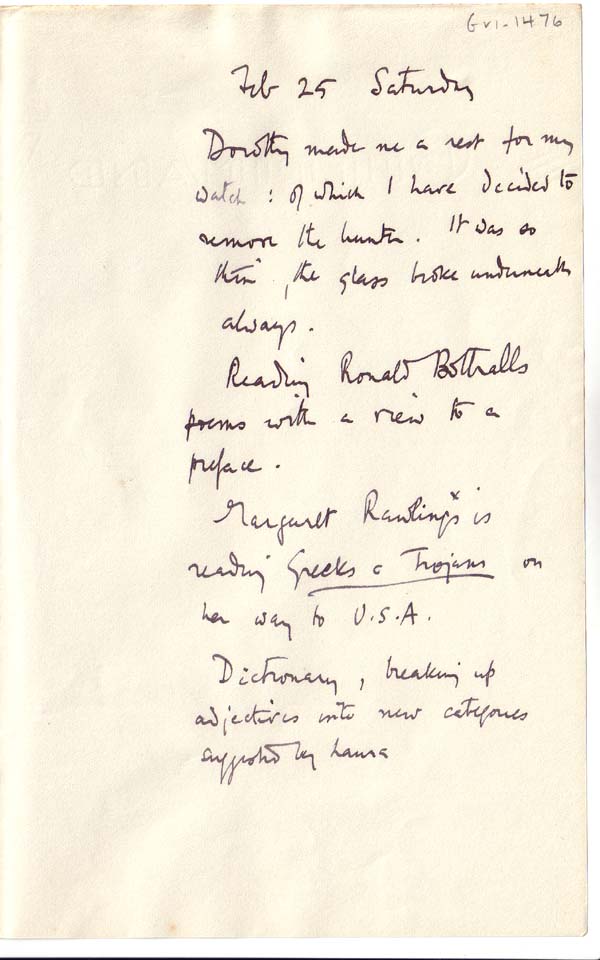 GVI-1476
Feb 25 Saturday
Dorothy made me a rest for my
watch : of which I have decided to
remove the hunter. It was so
thin, the glass broke underneath
always.
Reading Ronald Bottralls
poems with a view to a
preface.
Margaret Rawlings x is
reading Greeks & Trojans on
her way to U.S.A.
Dictionary, breaking up
adjectives into new categories
suggested by Laura